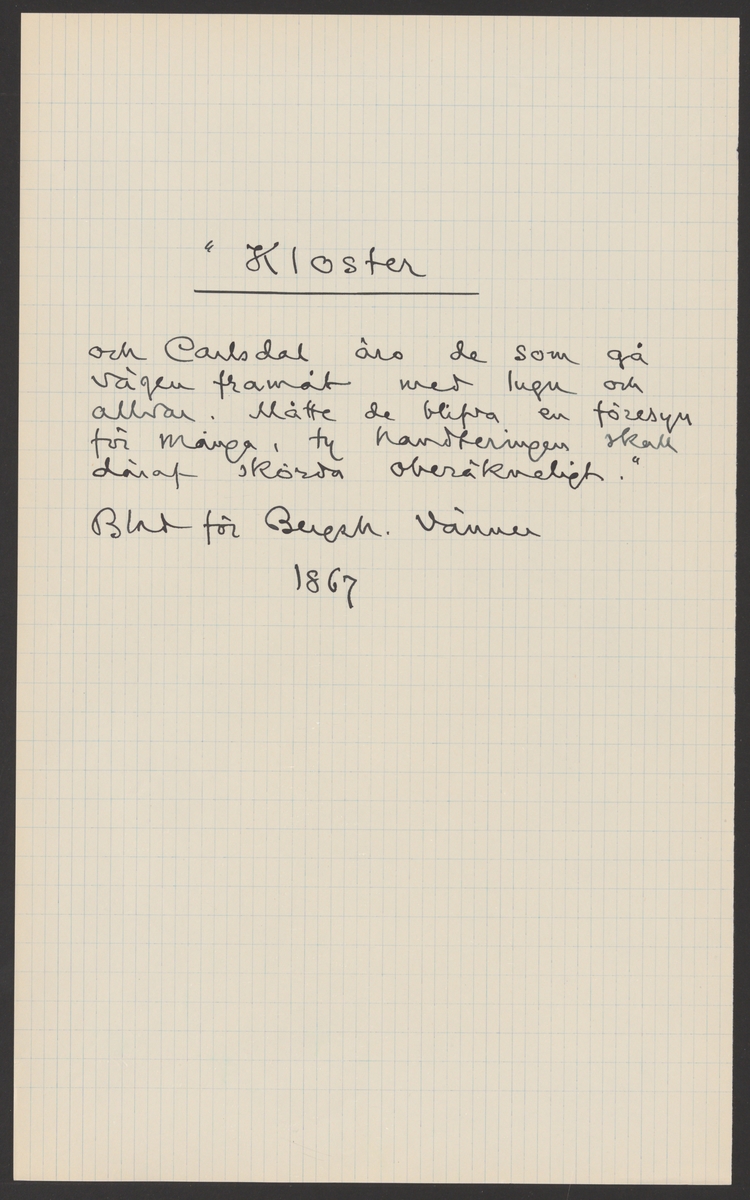 " Kloster
och Carlsdal äro de som gå
vägen framåt med lugn och
allvar. Måtte de blifva en föresyn
för många, ty handteringen skall
däraf skörda oberäkneligt."
Blad för Bergsh. Vänner
1867